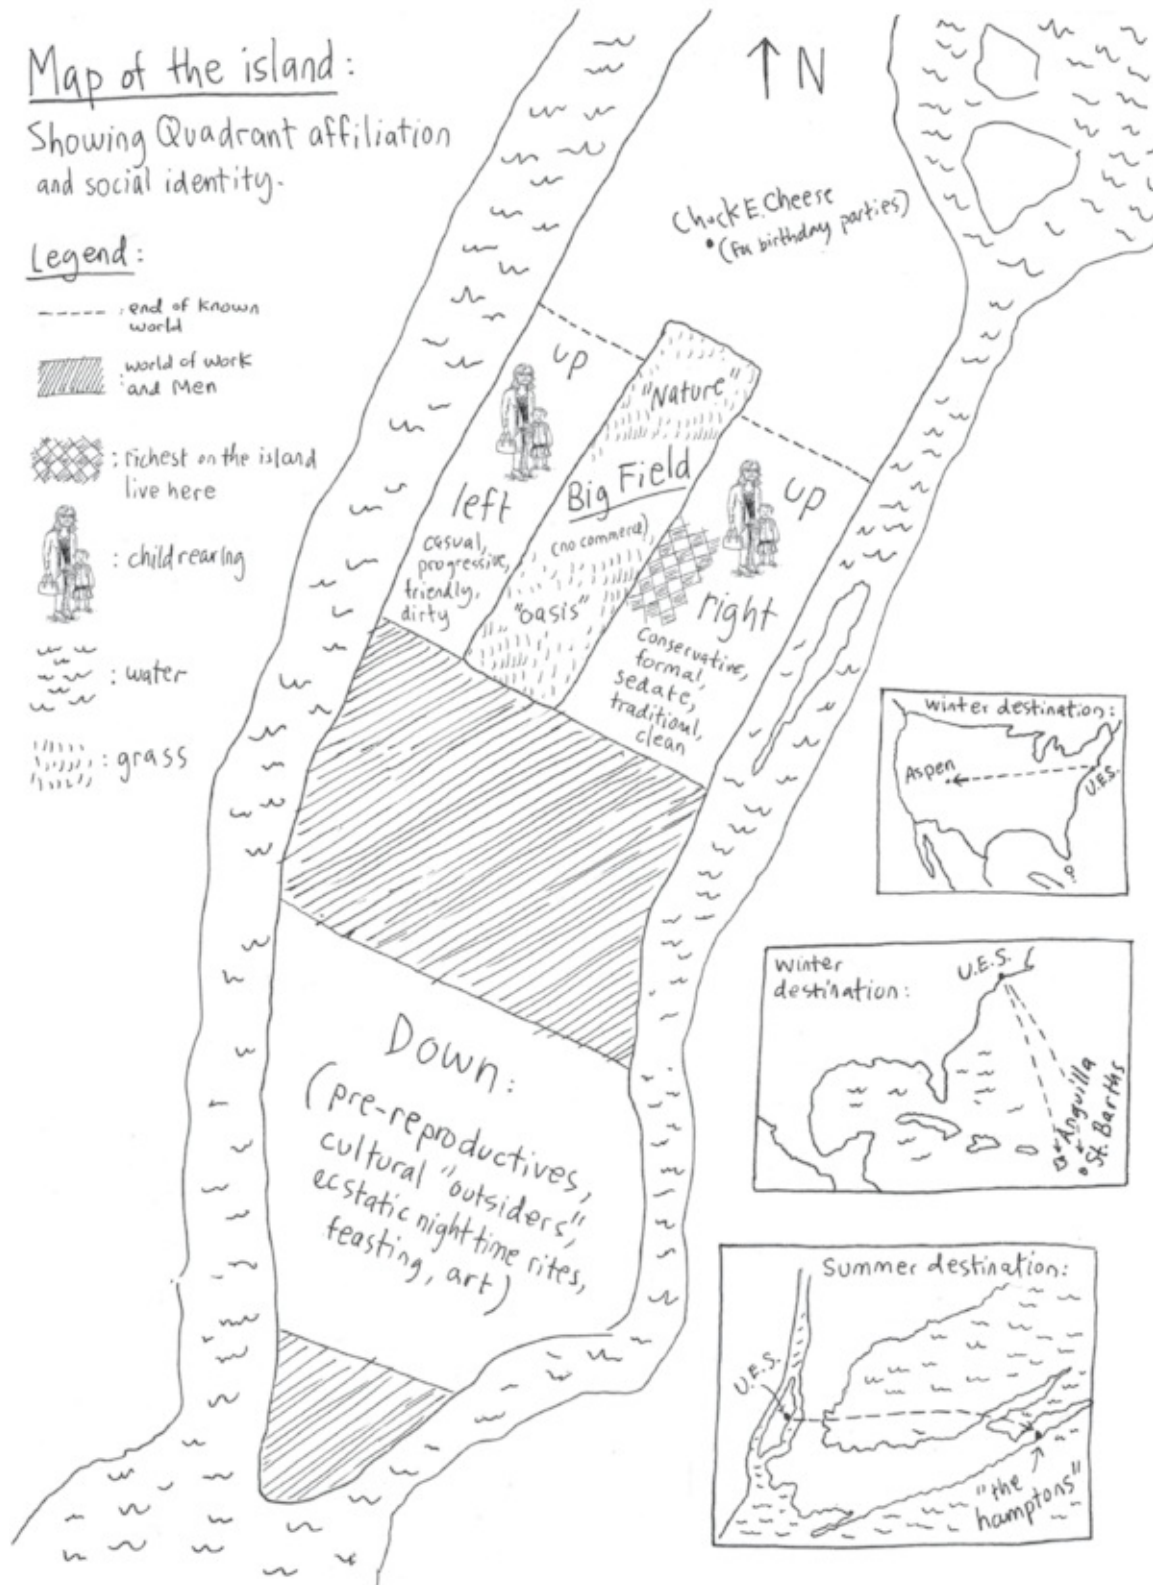 Map of the island:
Showing Quadrant affiliation
and social identity.
Legend:
: end of known
world
: world of work
and Men
: richest on the island
live here
: childrearing
: water
: grass
N
Chuck E. Cheese
(for birthday parties)
up
left
casual,
progressive,
friendly,
dirty
"Nature"
Big Field
(no commerce)
"oasis"
up
right
Conservative,
formal,
sedate,
traditional,
clean
Down:
(pre-reproductives,
cultural "outsiders",
ecstatic nighttime rites,
feasting, art)
Winter destination:
Aspen
U.E.S.
Winter
destination:
U.E.S.
Anguilla
St. Barths
Summer destination:
U.E.S.
"the
hamptons"